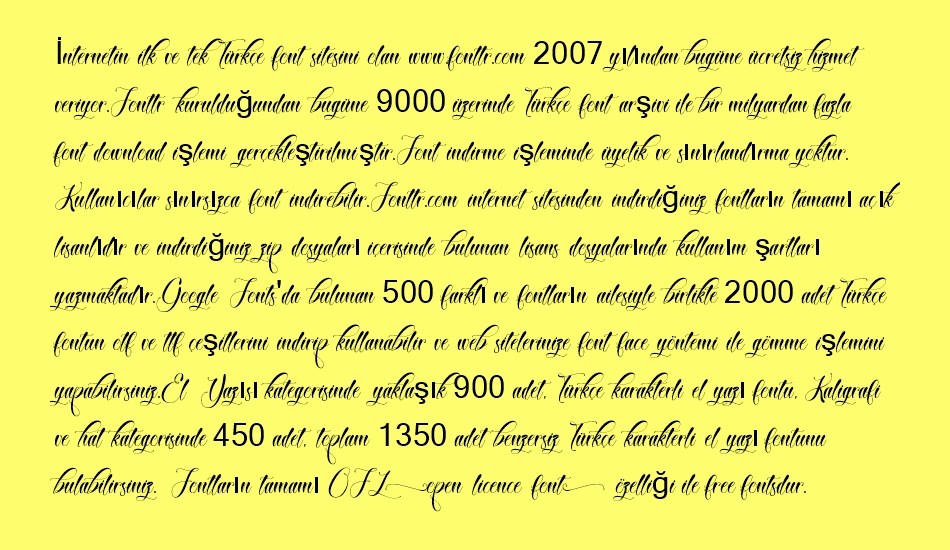 İnternetin ilk ve tek Türkçe font sitesini olan www.fonttr.com 2007 yılından bugüne ücretsiz hizmet
veriyor.Fonttr kurulduğundan bugüne 9000 üzerinde Türkçe font arşivi ile bir milyardan fazla
font download işlemi gerçekleştirilmiştir.Font indirme işleminde üyelik ve sınırlandırma yoktur.
Kullanıcılar sınırsızca font indirebilir.Fonttr.com internet sitesinden indirdiğiniz fontların tamamı açık
lisanlıdır ve indirdiğiniz zip dosyaları içerisinde bulunan lisans dosyalarında kullanım şartları
yazmaktadır.Google Fonts'da bulunan 500 farklı ve fontların ailesiyle birlikte 2000 adet Türkçe
fontun otf ve ttf çeşitlerini indirip kullanabilir ve web sitelerinize font face yöntemi ile gömme işlemini
yapabilirsiniz.El Yazısı kategorisinde yaklaşık 900 adet, Türkçe karakterli el yazı fontu, Kaligrafi
ve hat kategorisinde 450 adet, toplam 1350 adet benzersiz Türkçe karakterli el yazı fontunu
bulabilirsiniz. Fontların tamamı OFL open licence font özelliği ile free fontsdur.